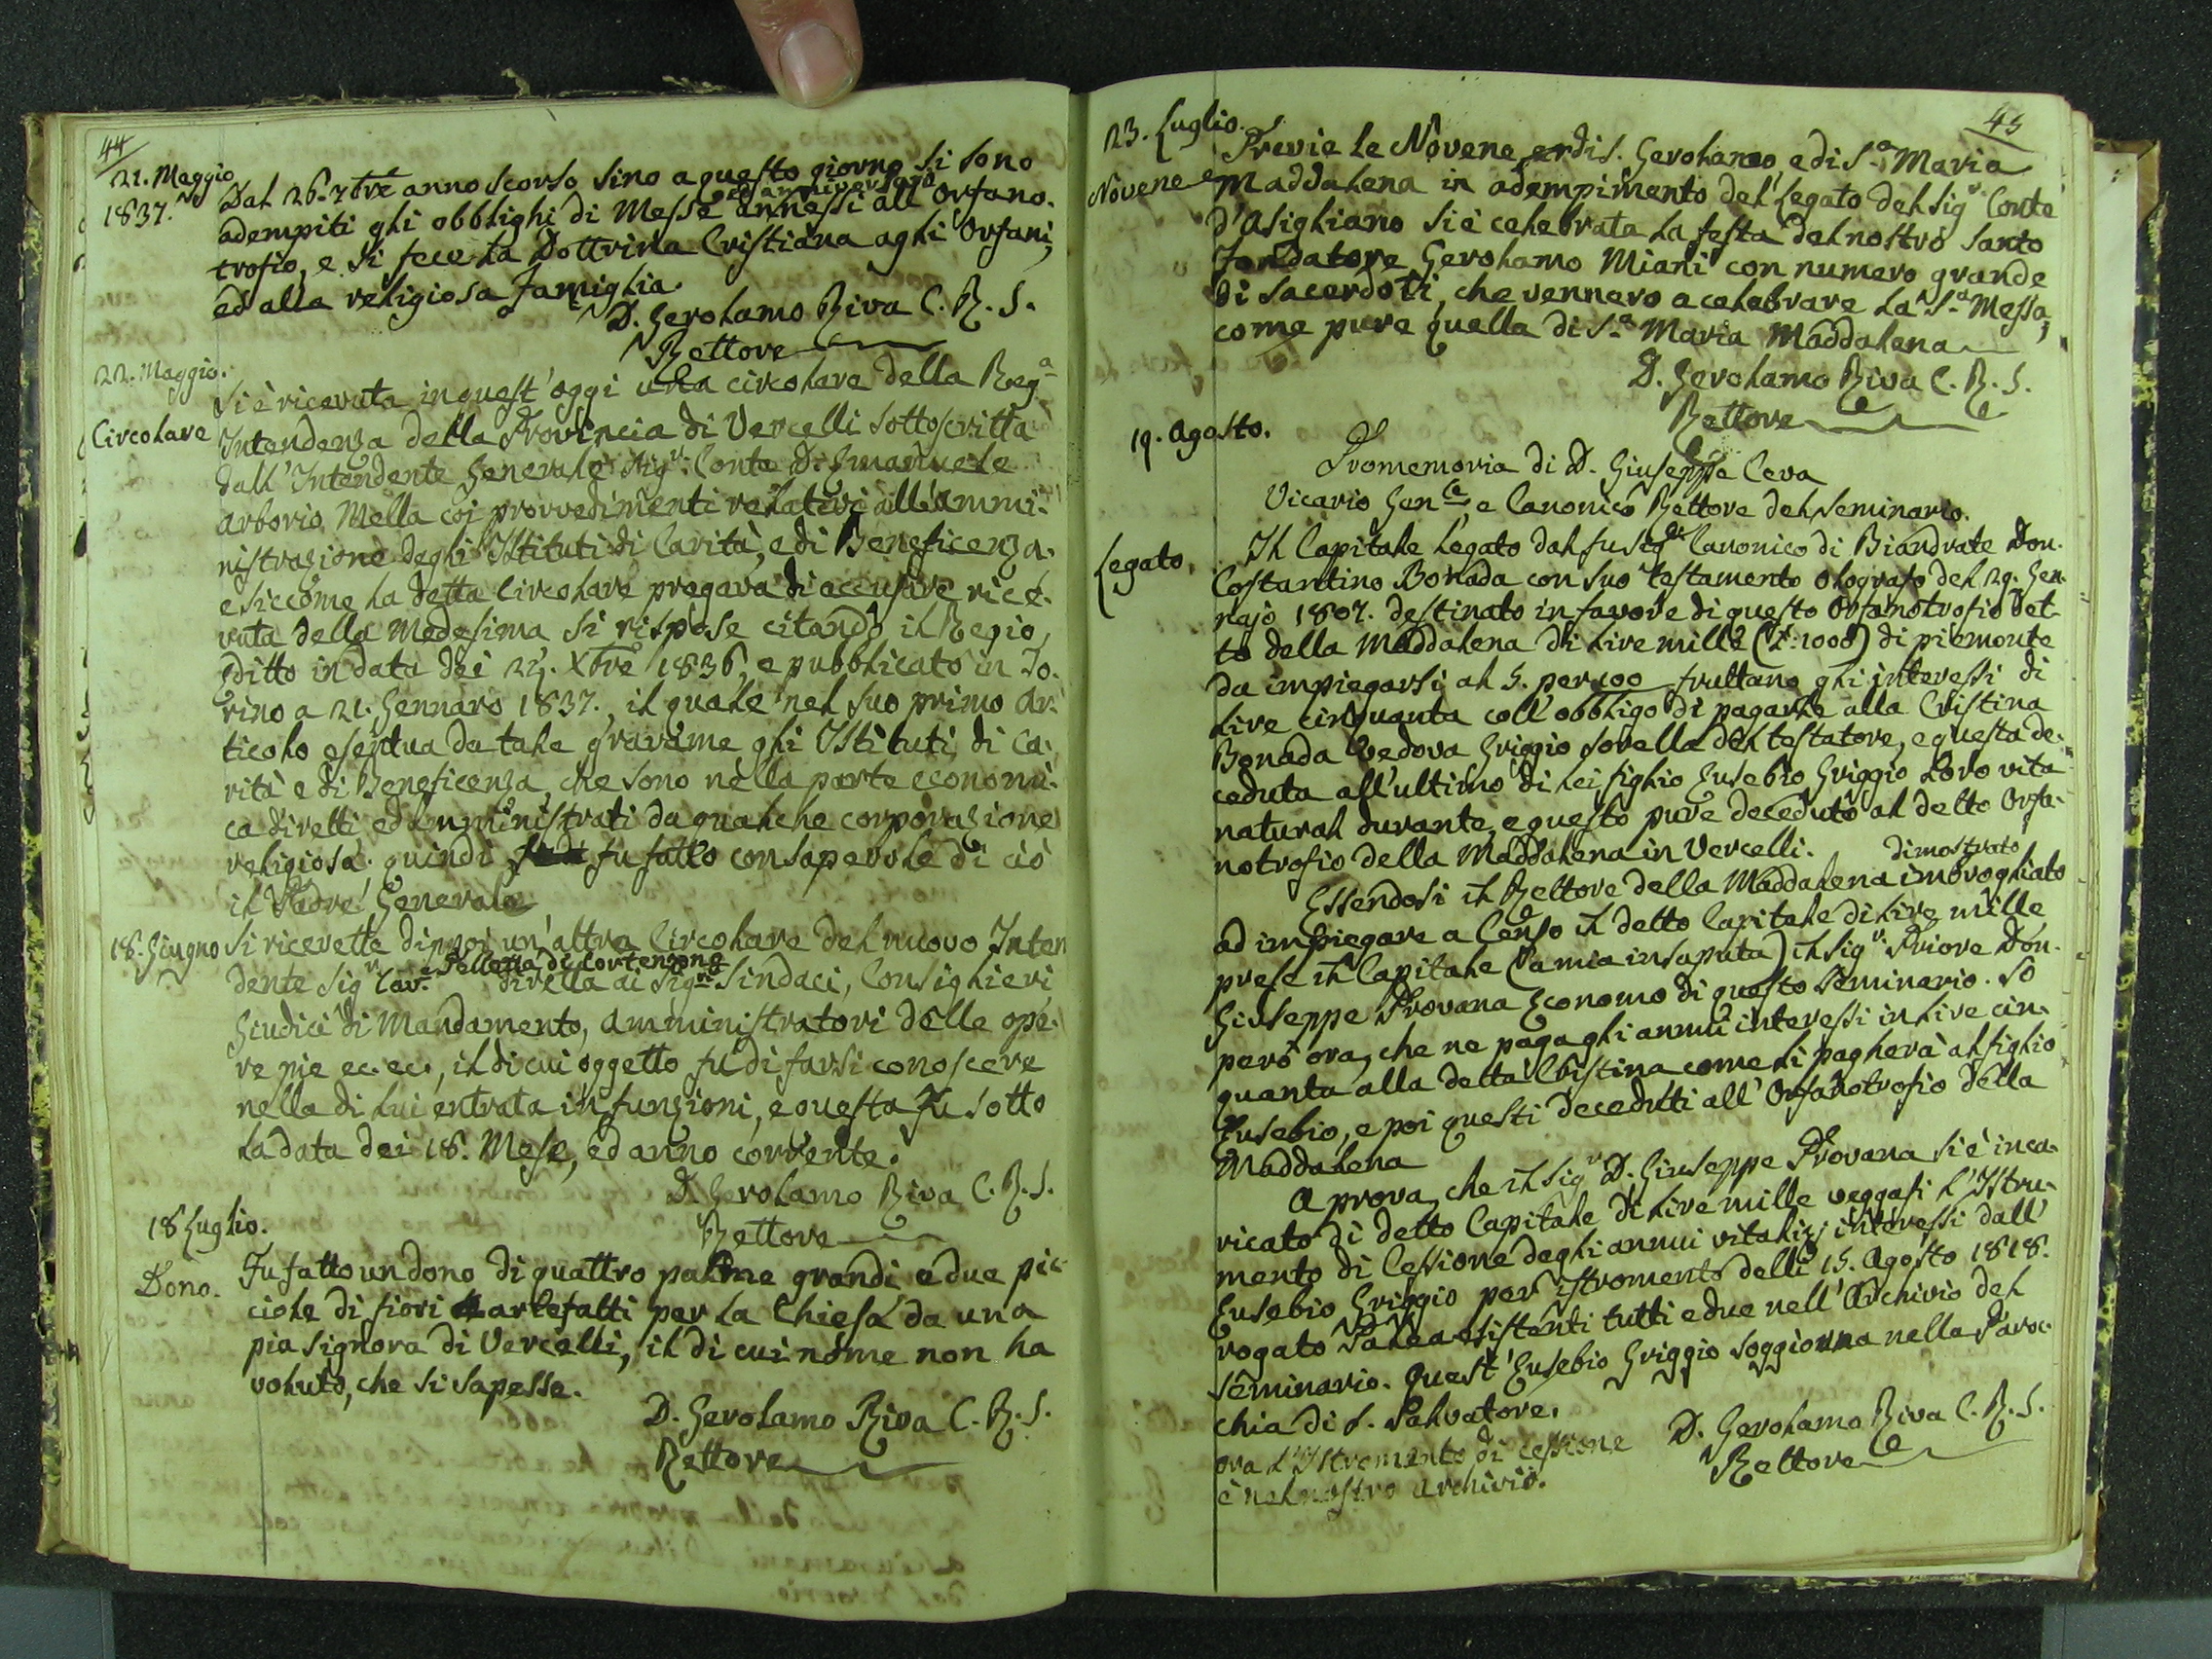 44
21. Maggio
1837.
Dal 26. 7bre anno scorso sino a questo giorno si sono
adempiti gli obblighi di Messe ed anniversarj annessi all'Orfano-
trofio, e si fece la Dottrina Cristiana agli Orfani,
ed alla religiosa famiglia.
D. Gerolamo Riva C. R. S.
Rettore
22. Maggio.
Circolare
Si è ricevuta in quest'oggi una circolare della Reg.a
Intendenza della Provincia di Vercelli sottoscritta
dall'Intendente Generale Sig.r Conte D. Emanuele
Arborio Mella coi provvedimenti relativi all'ammi-
nistrazione degli Istituti di Carità, e di Beneficenza.
e siccome la detta Circolare pregava di accusare rice-
vuta della medesima si rispose citando il Regio
Editto in data dei 24. Xbre 1836, e pubblicato in To-
rino a 21. Gennaro 1837., il quale nel suo primo Ar-
ticolo esentua da tale gravame gli Istituti di Ca-
rità e di Beneficenza, che sono nella parte economi-
ca diretti ed amministrati da qualche corporazione
religiosa. quindi fu fatto consapevole di ciò
il Padre Generale
18. Giugno
Si ricevette dippoi un'altra Circolare del nuovo Inten
dente Sig.r Cav.e Pelletta di Cortenzone diretta ai Sig.ri Sindaci, Consiglieri
Giudici di Mandamento, Amministratori delle ope-
re pie ec. ec., il di cui oggetto fu di farsi conoscere
nella di lui entrata in funzioni, e questa fu sotto
la data dei 18. Mese, ed anno corrente.
D. Gerolamo Riva C. R. S.
Rettore
18 Luglio.
Dono.
Fu fatto un dono di quattro palme grandi e due pic
ciole di fiori artefatti per la Chiesa da una
pia signora di Vercelli, il di cui nome non ha
voluto, che si sapesse.
D. Gerolamo Riva C. R. S.
Rettore
45
23. Luglio.
Novene e
Previe le Novene di S. Gerolamo, e di S.a Maria
Maddalena in adempimento del Legato del Sig.r Conte
d'Asigliano si è celebrata la festa del nostro Santo
Fondatore Gerolamo Miani con numero grande
di Sacerdoti, che vennero a celebrare la S.a Messa,
come pure quella di S.a Maria Maddalena
D. Gerolamo Riva C. R. S.
Rettore
19. Agosto.
Promemoria di D. Giuseppe Ceva
Vicario Gen.le, e Canonico Rettore del Seminario.
Legato.
Il Capitale legato dal fu Sig.r Canonico di Biandrate Don
Costantino Bonada con suo testamento olografo del 29. Gen-
najo 1807. destinato in favore di questo Orfanotrofio det-
to della Maddalena di lire mille (L. 1000) di piemonte
da impiegarsi al 5. per 100 fruttano gli interessi di
lire cinquanta coll'obbligo di pagarle alla Cristina
Bonada Vedova Griggio sorella del testatore, e questa de-
ceduta all'ultimo di lei figlio Eusebio Griggio loro vita
natural durante, e questo pure deceduto al detto Orfa-
notrofio della Maddalena in Vercelli.
Essendosi il Rettore della Maddalena dimostrato imbrogliato
ad impiegare a Censo il detto Capitale di lire mille
prese il Capitale (a mia insaputa) il Sig.r Priore Don
Giuseppe Provana Economo di questo Seminario. So
però ora, che ne paga gli annui interessi in lire cin-
quanta alla detta Cristina come li pagherà al figlio
Eusebio, e poi questi deceduti all'Orfanotrofio della
Maddalena
A prova, che il Sig.r D. Giuseppe Provana si è inca-
ricato di detto Capitale di lire mille veggasi l'Istru-
mento di Cessione degli annui vitalizj interessi dall'
Eusebio Griggio per istromento delli 15. Agosto 1818.
rogato esistenti tutti e due nell'Archivio del
Seminario. Quest'Eusebio Griggio soggiorna nella Paroc-
chia di S. Salvatore.
ora l'Istromento di cessione
è nel nostro Archivio.
D. Gerolamo Riva C. R. S.
Rettore